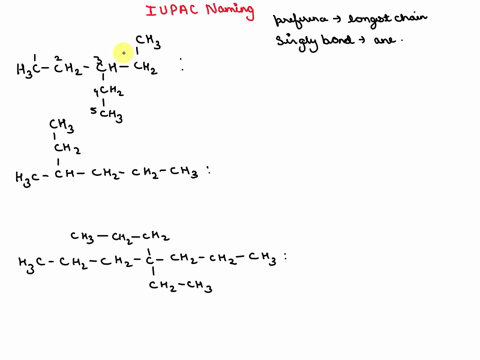 IUPAC Naming
prefernu → longest chain
Singly bond → ane.
CH3
1 2 3
H3C - CH2 - CH - CH2 :
4 CH2
5 CH3
CH3
CH2
H3C - CH - CH2 - CH2 - CH3 :
CH3 - CH2 - CH2
H3C - CH2 - CH2 - C - CH2 - CH2 - CH3 :
CH2 - CH3